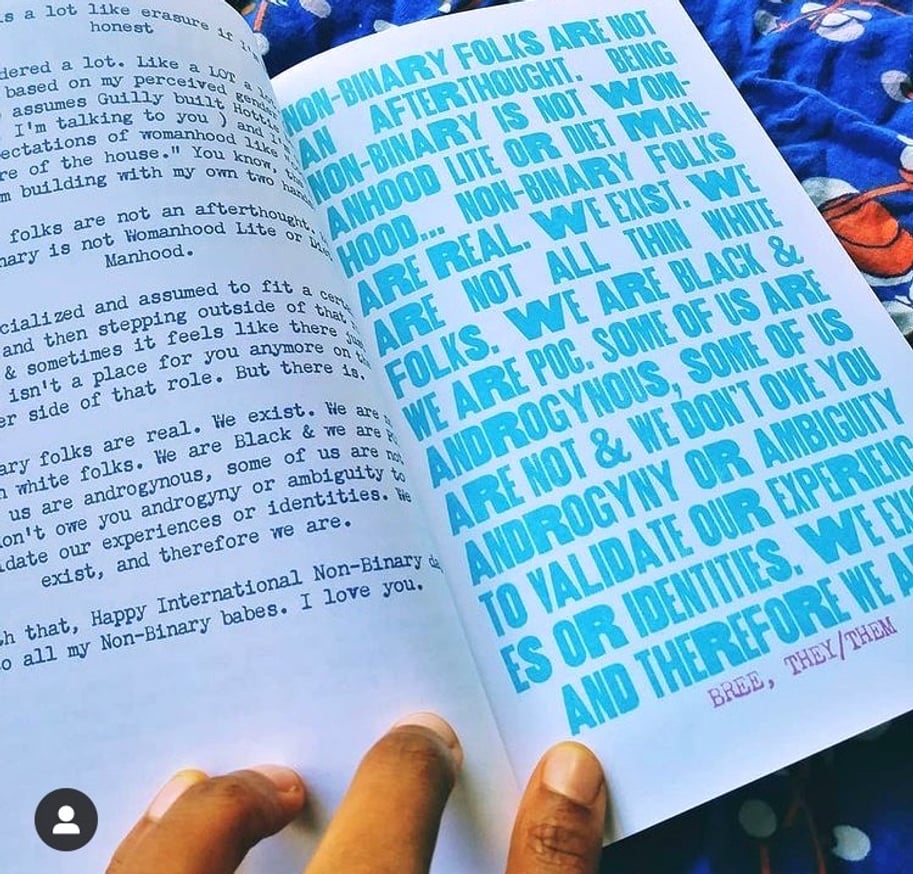 s a lot like erasure if
honest
dered a lot. Like a LOT
based on my perceived gender
assumes Guilly built Hottie
I'm talking to you ) and
ectations of womanhood like
re of the house." You know, the
m building with my own two
folks are not an afterthought.
nary is not Womanhood Lite or
Manhood.
cialized and assumed to fit a
and then stepping outside of that
& sometimes it feels like there
isn't a place for you anymore on
er side of that role. But there is.
ary folks are real. We exist. We are
n white folks. We are Black & we are
us are androgynous, some of us are not
on't owe you androgyny or ambiguity to
idate our experiences or identities. We
exist, and therefore we are.
h that, Happy International Non-Binary
o all my Non-Binary babes. I love you.
NON-BINARY FOLKS ARE NOT
AN AFTERTHOUGHT. BEING
NON-BINARY IS NOT WOM-
ANHOOD LITE OR DIET MAN-
HOOD... NON-BINARY FOLKS
ARE REAL. WE EXIST. WE
ARE NOT ALL THIN WHITE
FOLKS. WE ARE BLACK &
WE ARE POC. SOME OF US ARE
ANDROGYNOUS, SOME OF US
ARE NOT & WE DON'T OWE YOU
ANDROGYNY OR AMBIGUITY
TO VALIDATE OUR EXPERIENC
ES OR IDENTITIES. WE EXI
AND THEREFORE WE A
BREE, THEY/THEM